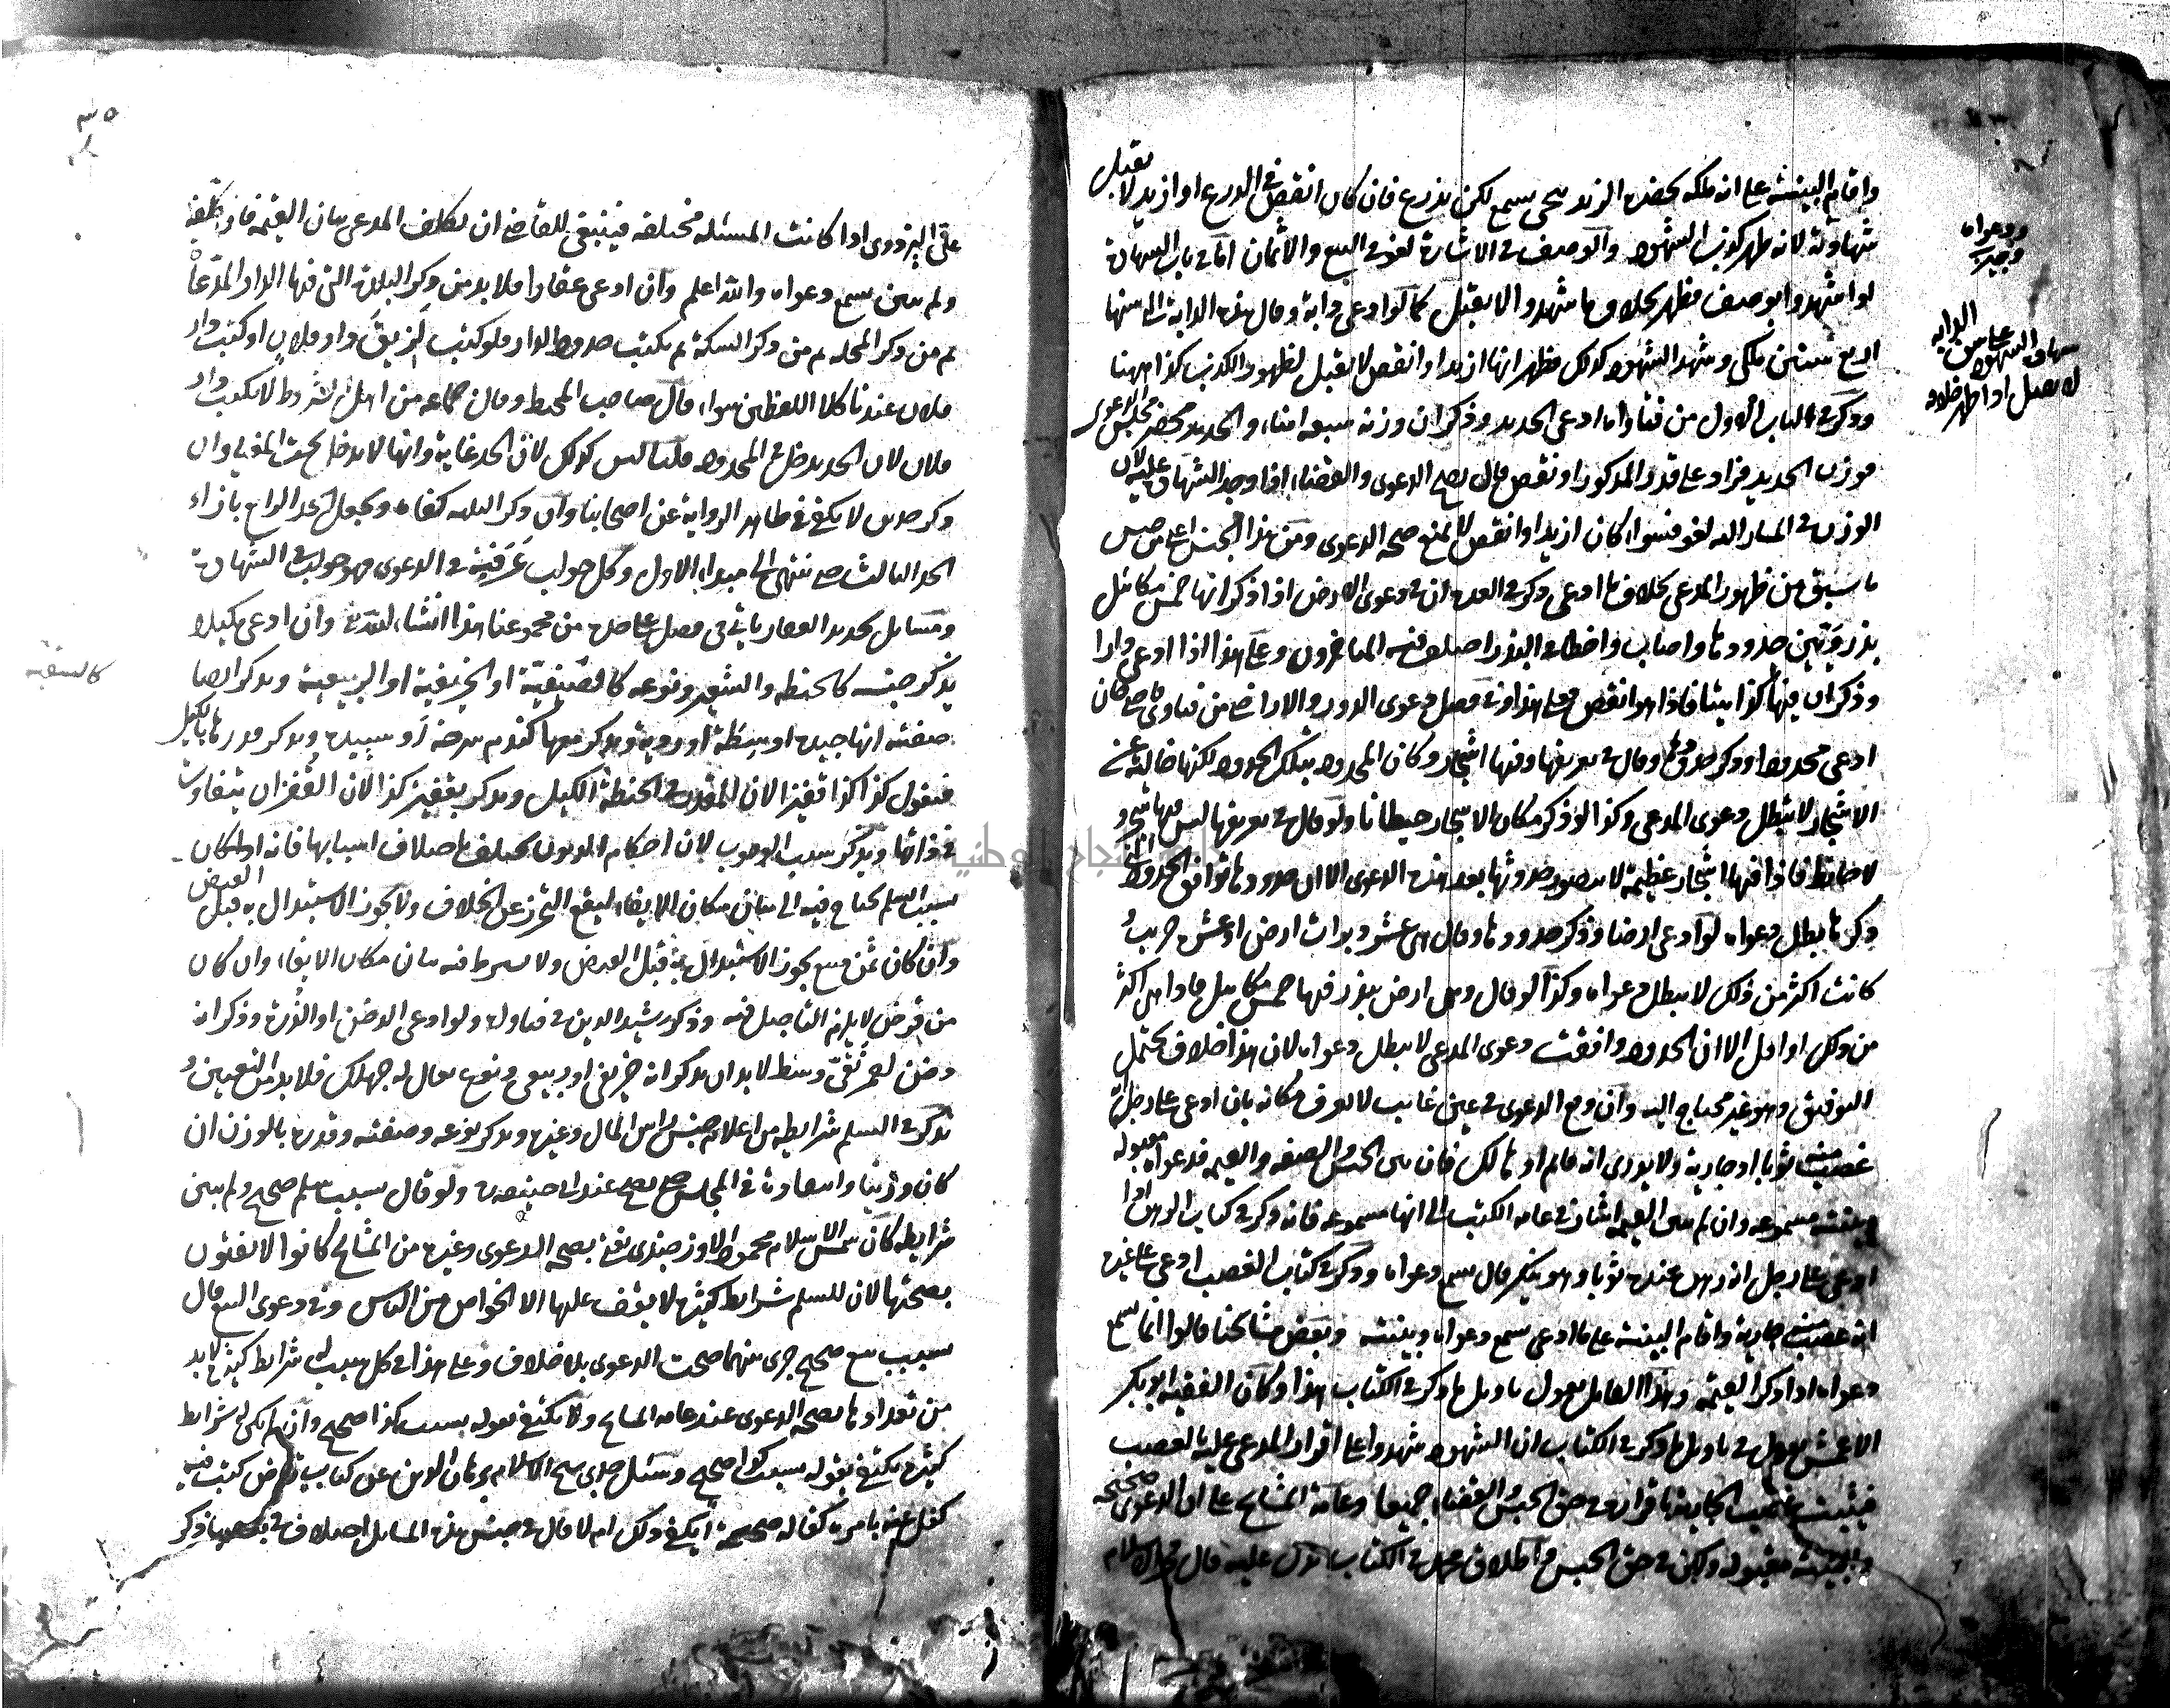 واقام البينة على انه ملكه بحضرة الزند بيجي يسمع لكن يذرع فان كان انقص في الذرع او ازيد لا يقبل
شهادته لانه ظهر كذب الشهود والوصف في الاشارة لغو في البيع والاثمان اما في باب الشهادة
لو اشهدوا بوصف فظهر بخلاف ما شهدوا لا يقبل كما لو ادعى دابة وقال هذه الدابة التي سنها
اربع سنين ملكي وشهد الشهود كذلك فظهر انها ازيد او انقص لا يقبل لظهور الكذب كذا ههنا
وذكر في الباب الاول من فتاواه ادعى الحديد وذكر ان وزنه سبعة امناء والحديد محضر مجلس الدعوى
فوزن الحديد فزاد على قدر المذكور او نقص قال يصح الدعوى والقضاء اذا وجد الشهادة عليه لان
الوزن في المشار اليه لغو فسواء كان ازيد او انقص لا يمنع صحة الدعوى ومن هذا الجنس
ما سبق من ظهور المدعى بخلاف ما ادعى وذكر في العدة ان في دعوى الارض اذا ذكر انها خمس مكائيل
بذر وبين حدودها واصاب واخطا في البذر اختلف فيه المتاخرون وعلى هذا اذا ادعى دارا
وذكر ان فيها كذا بيتا فاذا هو انقص فعلى هذا وفي فصل دعوى الدور والاراضي من فتاوى قاضي خان
ادعى محدودا وذكر حدوده وقال في تعريفها وفيها اشجار وكان المحدود بتلك الحدود لكنها خالية عن
الاشجار لا يبطل دعوى المدعي وكذا لو ذكر مكان الاشجار حيطانا ولو قال في تعريفها ليس فيها شجر و
لا حائط فاذا فيها اشجار عظيمة لا يتصور حدوثها بعد هذه الدعوى الا ان حدودها توافق الحدود التي
ذكرها يبطل دعواه لو ادعى ارضا وذكر حدودها وقال هي عشر دبرات ارض او عشر جريب
كانت اكثر من ذلك لا يبطل دعواه وكذا لو قال وهي ارض يبذر فيها خمس مكائيل فاذا هي اكثر
من ذلك او اقل الا ان الحدود وافقت دعوى المدعي لا يبطل دعواه لان هذا خلاف يحتمل
التوفيق وهو غير محتاج اليه وان وقع الدعوى في عين غائب لا يعرف مكانه بان ادعى على رجل انه
غصب منه ثوبا او جارية ولا يدري انه قائم او هالك فان بين الجنس والصفة والقيمة فدعواه مقبولة
وبينته مسموعة وان لم يبين القيمة اشار في عامة الكتب الى انها مسموعة فانه ذكر في كتاب الرهن اذا
ادعى على رجل انه رهن عنده ثوبا وهو ينكر قال يسمع دعواه وذكر في كتاب الغصب ادعى على غيره
انه غصب منه جارية واقام البينة على ما ادعى يسمع دعواه وبينته وبعض مشايخنا قالوا انما يسمع
دعواه اذا ذكر القيمة وهذا القائل يقول تاويل ما ذكر في الكتاب هذا وكان الفقيه ابو بكر
الاعمش يقول في تاويل ما ذكر في الكتاب ان الشهود شهدوا على اقرار المدعى عليه بالغصب
فيثبت غصب الجارية باقراره في حق الحبس والقضاء جميعا وعامة المشايخ على ان الدعوى صحيحة
والبينة مقبولة ولكن في حق الحبس واطلاق محمد في الكتاب يدل عليه قال فخر الاسلام
ودعواه
وجيز
لا يقبل اذا ظهر خلافه
علي البزدوي اذا كانت المسئلة مختلفة فينبغي للقاضي ان يكلف المدعي بيان القيمة فاذا كلفه
ولم يبين يسمع دعواه والله اعلم وان ادعى عقارا فلا بد من ذكر البلدة التي فيها الدار المدعاة
ثم من ذكر المحلة ثم من ذكر السكة ثم يكتب حدود الدار فلو كتب لزيق دار فلان او كتب دار
فلان عندنا كلا اللفظين سواء قال صاحب المحيط وقال جماعة من اهل الشروط لا يكتب دار
فلان لان الحد يدخل في المحدود قلنا ليس كذلك لان الحد غاية وانها لا يدخل تحت المغيا وان
ذكر حدين لا يكفي في ظاهر الرواية عن اصحابنا وان ذكر الثلثة كفاه ويجعل الحد الرابع بازاء
الحد الثالث حتى ينتهي الى مبداء الاول وكل جواب عرفته في الدعوى فهو جواب في الشهادة
ومسائل تحديد العقار ياتي في فصل على حدة من مجموعنا هذا انشاء الله تعالى وان ادعى مكيلا
يذكر جنسه كالحنطة والشعير ونوعه كالصيفية او الخريفية او الربيعية ويذكر ايضا
صفته انها جيدة او وسطة او ردية ويذكر معها كندم سرخه او سپيده ويذكر قدرها بالكيل
فيقول كذا كذا قفيزا لان المقدر في الحنطة الكيل ويذكر بقفيز كذا لان القفزان يتفاوت
في ذاتها ويذكر سبب الوجوب لان احكام الديون يختلف باختلاف اسبابها فانه اذا كان
بسبب السلم يحتاج فيه الى بيان مكان الايفاء ليقع التحرز عن الخلاف ولا يجوز الاستبدال به قبل القبض
وان كان ثمن مبيع يجوز الاستبدال به قبل القبض ولا يشرط فيه بيان مكان الايفاء وان كان
من قرض لا يلزم التاجيل فيه وذكر رشيد الدين في فتاواه ولو ادعى الدخن او الذرة وذكر انه
دخن احمر نقي وسط لا بد ان يذكر انه خريفي او ربيعي ونوع يقال له جهلك فلا بد من التعيين و
يذكر في السلم شرايطه من اعلام جنس راس المال وغيره ويذكر نوعه وصفته وقدره بالوزن ان
كان وزنيا وانتقاده في المجلس حتى يصح عند ابي حنيفة ولو قال بسبب سلم صحيح ولم يبين
شرايطه كان شمس الاسلام محمود الاوزجندي يفتي بصحة الدعوى وغيره من المشايخ كانوا لا يفتون
بصحتها لان للسلم شرايط كثيرة لا يقف عليها الا الخواص من الناس وفي دعوى البيع قال
بسبب بيع صحيح جرى بينهما صحت الدعوى بلا خلاف وعلى هذا في كل سبب له شرايط كثيرة لا بد
من تعدادها لصحة الدعوى عند عامة المشايخ ولا يكتفى بقوله بسبب كذا صحيح وان لم يكن له شرايط
كثيرة يكتفى بقوله بسبب كذا صحيح وسئل جدي شيخ الاسلام برهان الدين عن كتاب كتب فيه
كفل عنه بامره كفالة صحيحة ايكفي ذلك ام لا قال في جنس هذه المسائل اختلاف ذكر
كالسقية
٣٥